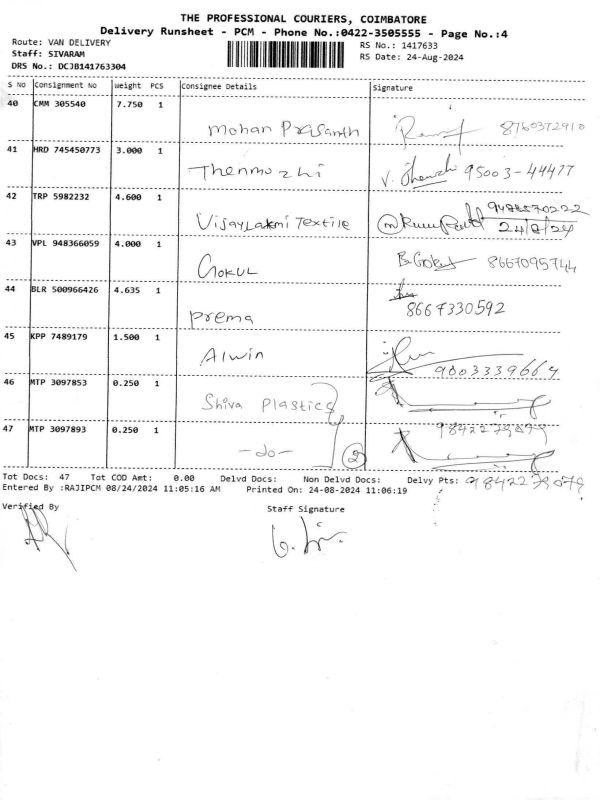 THE PROFESSIONAL COURIERS, COIMBATORE
Delivery Runsheet - PCM - Phone No.:0422-3505555 - Page No.:4
Route: VAN DELIVERY
Staff: SIVARAM
DRS No.: DCJB141763304
RS No.: 1417633
RS Date: 24-Aug-2024
S No Consignment No Weight PCS Consignee Details Signature
40 CMM 305540 7.750 1 Mohan Prasanth 8760372910
41 HRD 745450773 3.000 1 Thenmozhi 95003-44477
42 TRP 5982232 4.600 1 VijayLakmi Textile
24/8/24
43 VPL 948366059 4.000 1 Gokul B.Gokul 8667095744
44 BLR 500966426 4.635 1 Prema 8667330592
45 KPP 7489179 1.500 1 Alwin 9003339664
46 MTP 3097853 0.250 1 Shiva Plastics
47 MTP 3097893 0.250 1 -do- 2 9842279079
Tot Docs: 47 Tot COD Amt: 0.00 Delvd Docs: Non Delvd Docs: Delvy Pts: 9842279079
Entered By :RAJIPCM 08/24/2024 11:05:16 AM Printed On: 24-08-2024 11:06:19
Verified By Staff Signature